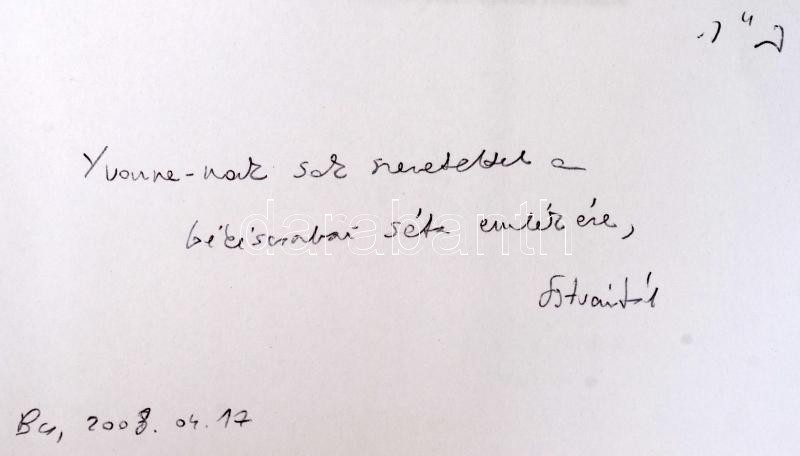 Yvonne-nak sok szeretettel a
békéscsabai séta emlékére,
Istvántól
Bcs, 2008. 04. 17
darabanth